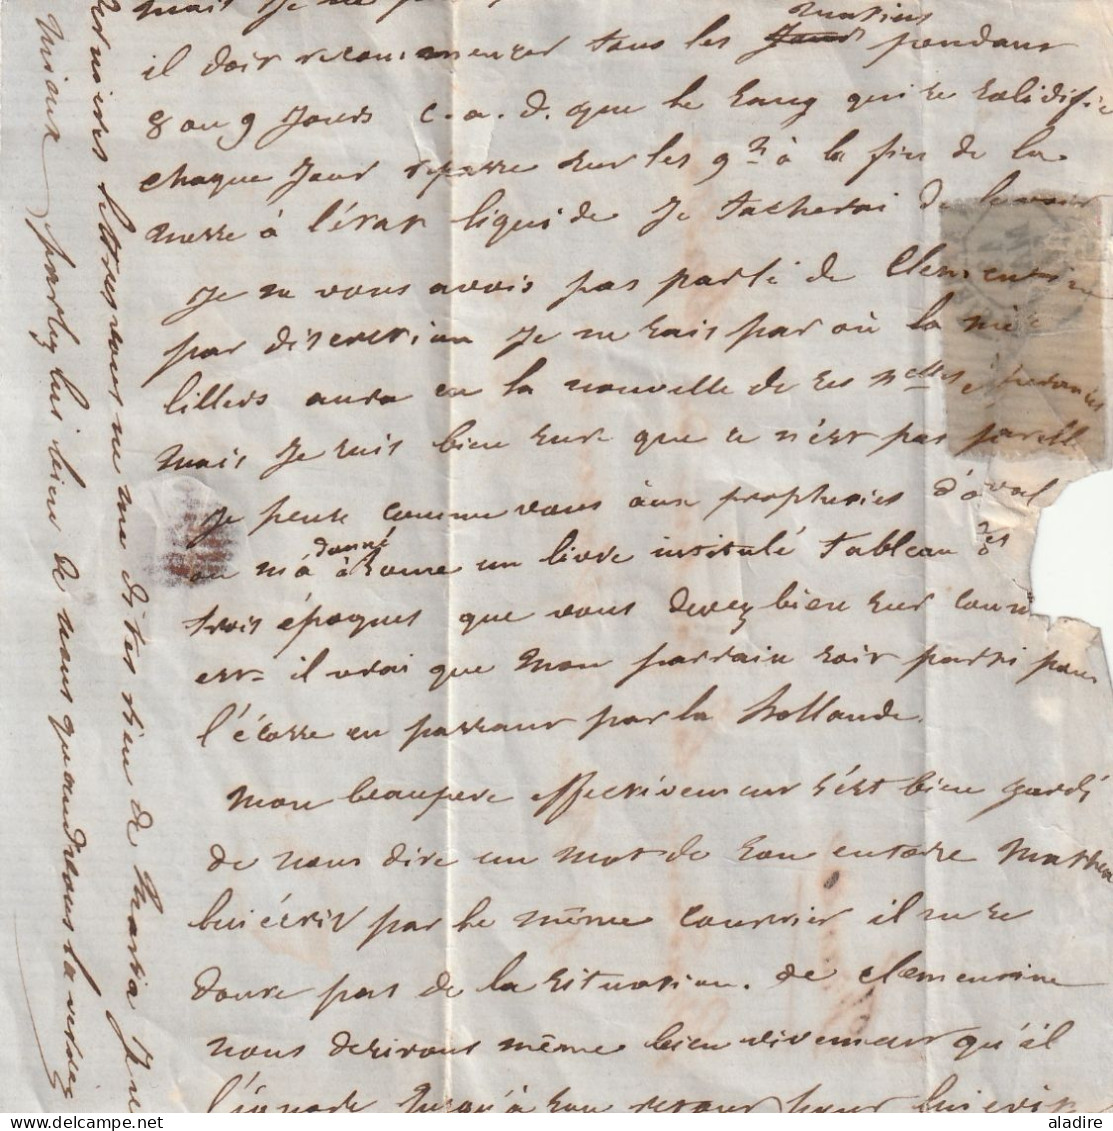 mais je me
matins
il doit recommencer tous les jours pendant
8 ou 9 jours c. a. d. que le sang qui se solidifie
chaque jour repasse sur les 9 h à la fin de la
messe à l'état liquide je tacherai de le voir
Je ne vous avois pas parlé de Clementine
par discretion je ne sais par où la mère
Lillers aura eu la nouvelle de ses nelles esperances
mais je suis bien sure que ce n'est pas par elle
Je pense comme vous aux propheties d'oval
donné
on m'a à Rome un livre intitulé tableau des
trois époques que vous devez bien sur conn
est-il vrai que mon parrain soit parti pour
l'écosse en passant par la hollande.
Mon beaupere effectivement s'est bien gardé
de nous dire un mot de son entorse
lui écrit par le même courrier il ne se
doute pas de la situation. de clementine
nous desirons même bien vivement qu'il
l'ignore jusqu'à son retour pour lui
dernieres lettres vous ne me dites rien de Maria Je
mieux parlez lui bien de nous quand vous la verrez